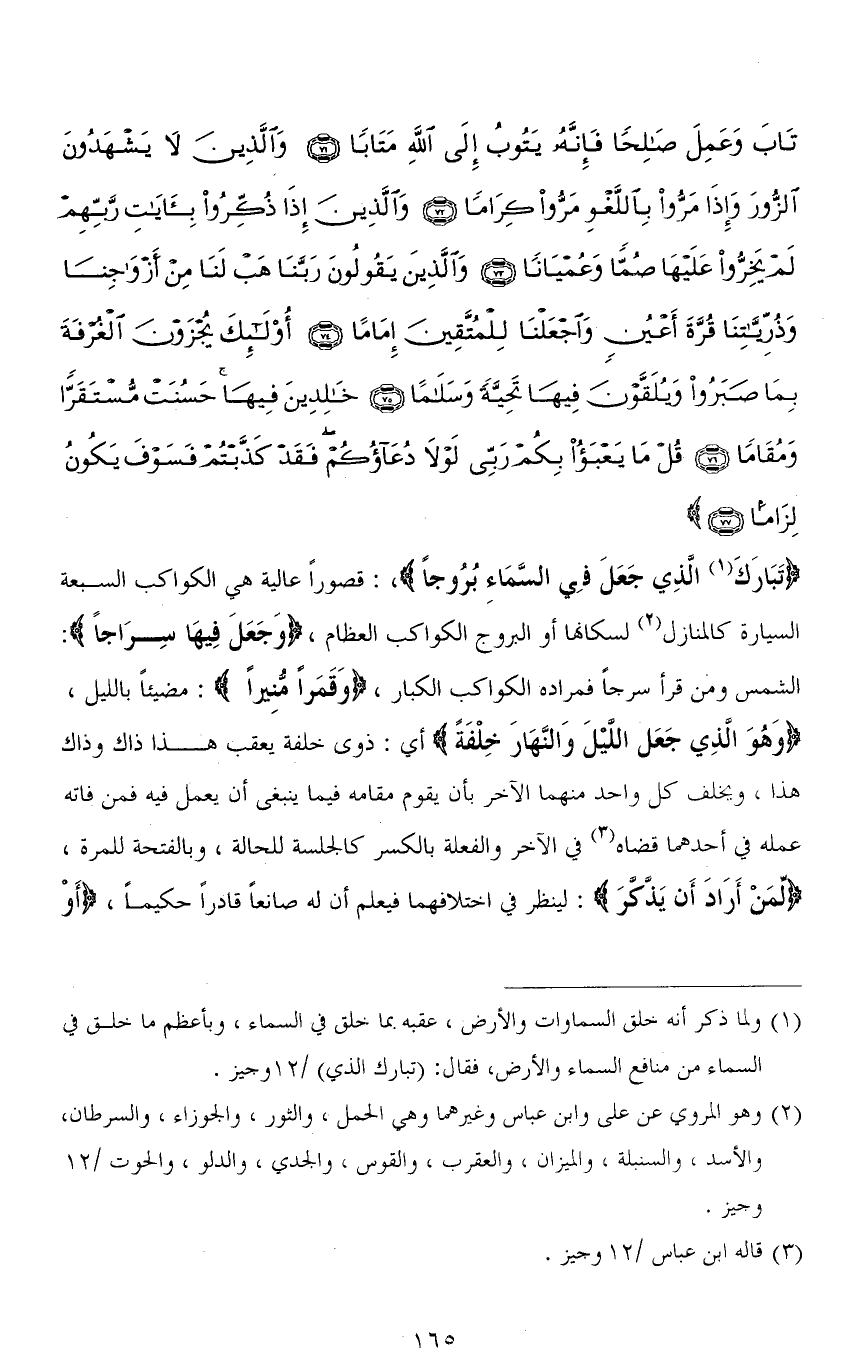 تَابَ وَعَمِلَ صَـٰلِحًا فَإِنَّهُۥ يَتُوبُ إِلَى ٱللَّهِ مَتَابًا ﴿٧١﴾ وَٱلَّذِينَ لَا يَشْهَدُونَ
ٱلزُّورَ وَإِذَا مَرُّوا۟ بِٱللَّغْوِ مَرُّوا۟ كِرَامًا ﴿٧٢﴾ وَٱلَّذِينَ إِذَا ذُكِّرُوا۟ بِـَٔايَـٰتِ رَبِّهِمْ
لَمْ يَخِرُّوا۟ عَلَيْهَا صُمًّا وَعُمْيَانًا ﴿٧٣﴾ وَٱلَّذِينَ يَقُولُونَ رَبَّنَا هَبْ لَنَا مِنْ أَزْوَٰجِنَا
وَذُرِّيَّـٰتِنَا قُرَّةَ أَعْيُنٍ وَٱجْعَلْنَا لِلْمُتَّقِينَ إِمَامًا ﴿٧٤﴾ أُو۟لَـٰٓئِكَ يُجْزَوْنَ ٱلْغُرْفَةَ
بِمَا صَبَرُوا۟ وَيُلَقَّوْنَ فِيهَا تَحِيَّةً وَسَلَـٰمًا ﴿٧٥﴾ خَـٰلِدِينَ فِيهَا ۚ حَسُنَتْ مُسْتَقَرًّا
وَمُقَامًا ﴿٧٦﴾ قُلْ مَا يَعْبَؤُا۟ بِكُمْ رَبِّى لَوْلَا دُعَآؤُكُمْ ۖ فَقَدْ كَذَّبْتُمْ فَسَوْفَ يَكُونُ
لِزَامًۢا ﴿٧٧﴾ ﴾
﴿تَبَارَكَ(١) الَّذِي جَعَلَ فِي السَّمَاءِ بُرُوجاً﴾، : قصوراً عالية هي الكواكب السبعة
السيارة كالمنازل(٢) لسكانها أو البروج الكواكب العظام ، ﴿وَجَعَلَ فِيهَا سِرَاجاً﴾:
الشمس ومن قرأ سرجاً فمراده الكواكب الكبار ، ﴿وَقَمَراً مُّنِيراً ﴾ : مضيئاً بالليل ،
﴿وَهُوَ الَّذِي جَعَلَ اللَّيْلَ وَالنَّهَارَ خِلْفَةً﴾ أي : ذوى خلفة يعقب هذا ذاك وذاك
هذا ، ويخلف كل واحد منهما الآخر بأن يقوم مقامه فيما ينبغى أن يعمل فيه فمن فاته
عمله في أحدهما قضاه(٣) في الآخر والفعلة بالكسر كالجلسة للحالة ، وبالفتحة للمرة ،
﴿لِّمَنْ أَرَادَ أَن يَذَّكَّرَ﴾ : لينظر في اختلافهما فيعلم أن له صانعاً قادراً حكيماً ، ﴿أَوْ
(١) ولما ذكر أنه خلق السماوات والأرض ، عقبه بما خلق في السماء ، وبأعظم ما خلق في
السماء من منافع السماء والأرض، فقال: (تبارك الذي) /١٢وجيز .
(٢) وهو المروي عن على وابن عباس وغيرهما وهي الحمل ، والثور ، والجوزاء ، والسرطان،
والأسد ، والسنبلة ، والميزان ، والعقرب ، والقوس ، والجدي ، والدلو ، والحوت /١٢
وجيز .
(٣) قاله ابن عباس /١٢ وجيز .
١٦٥